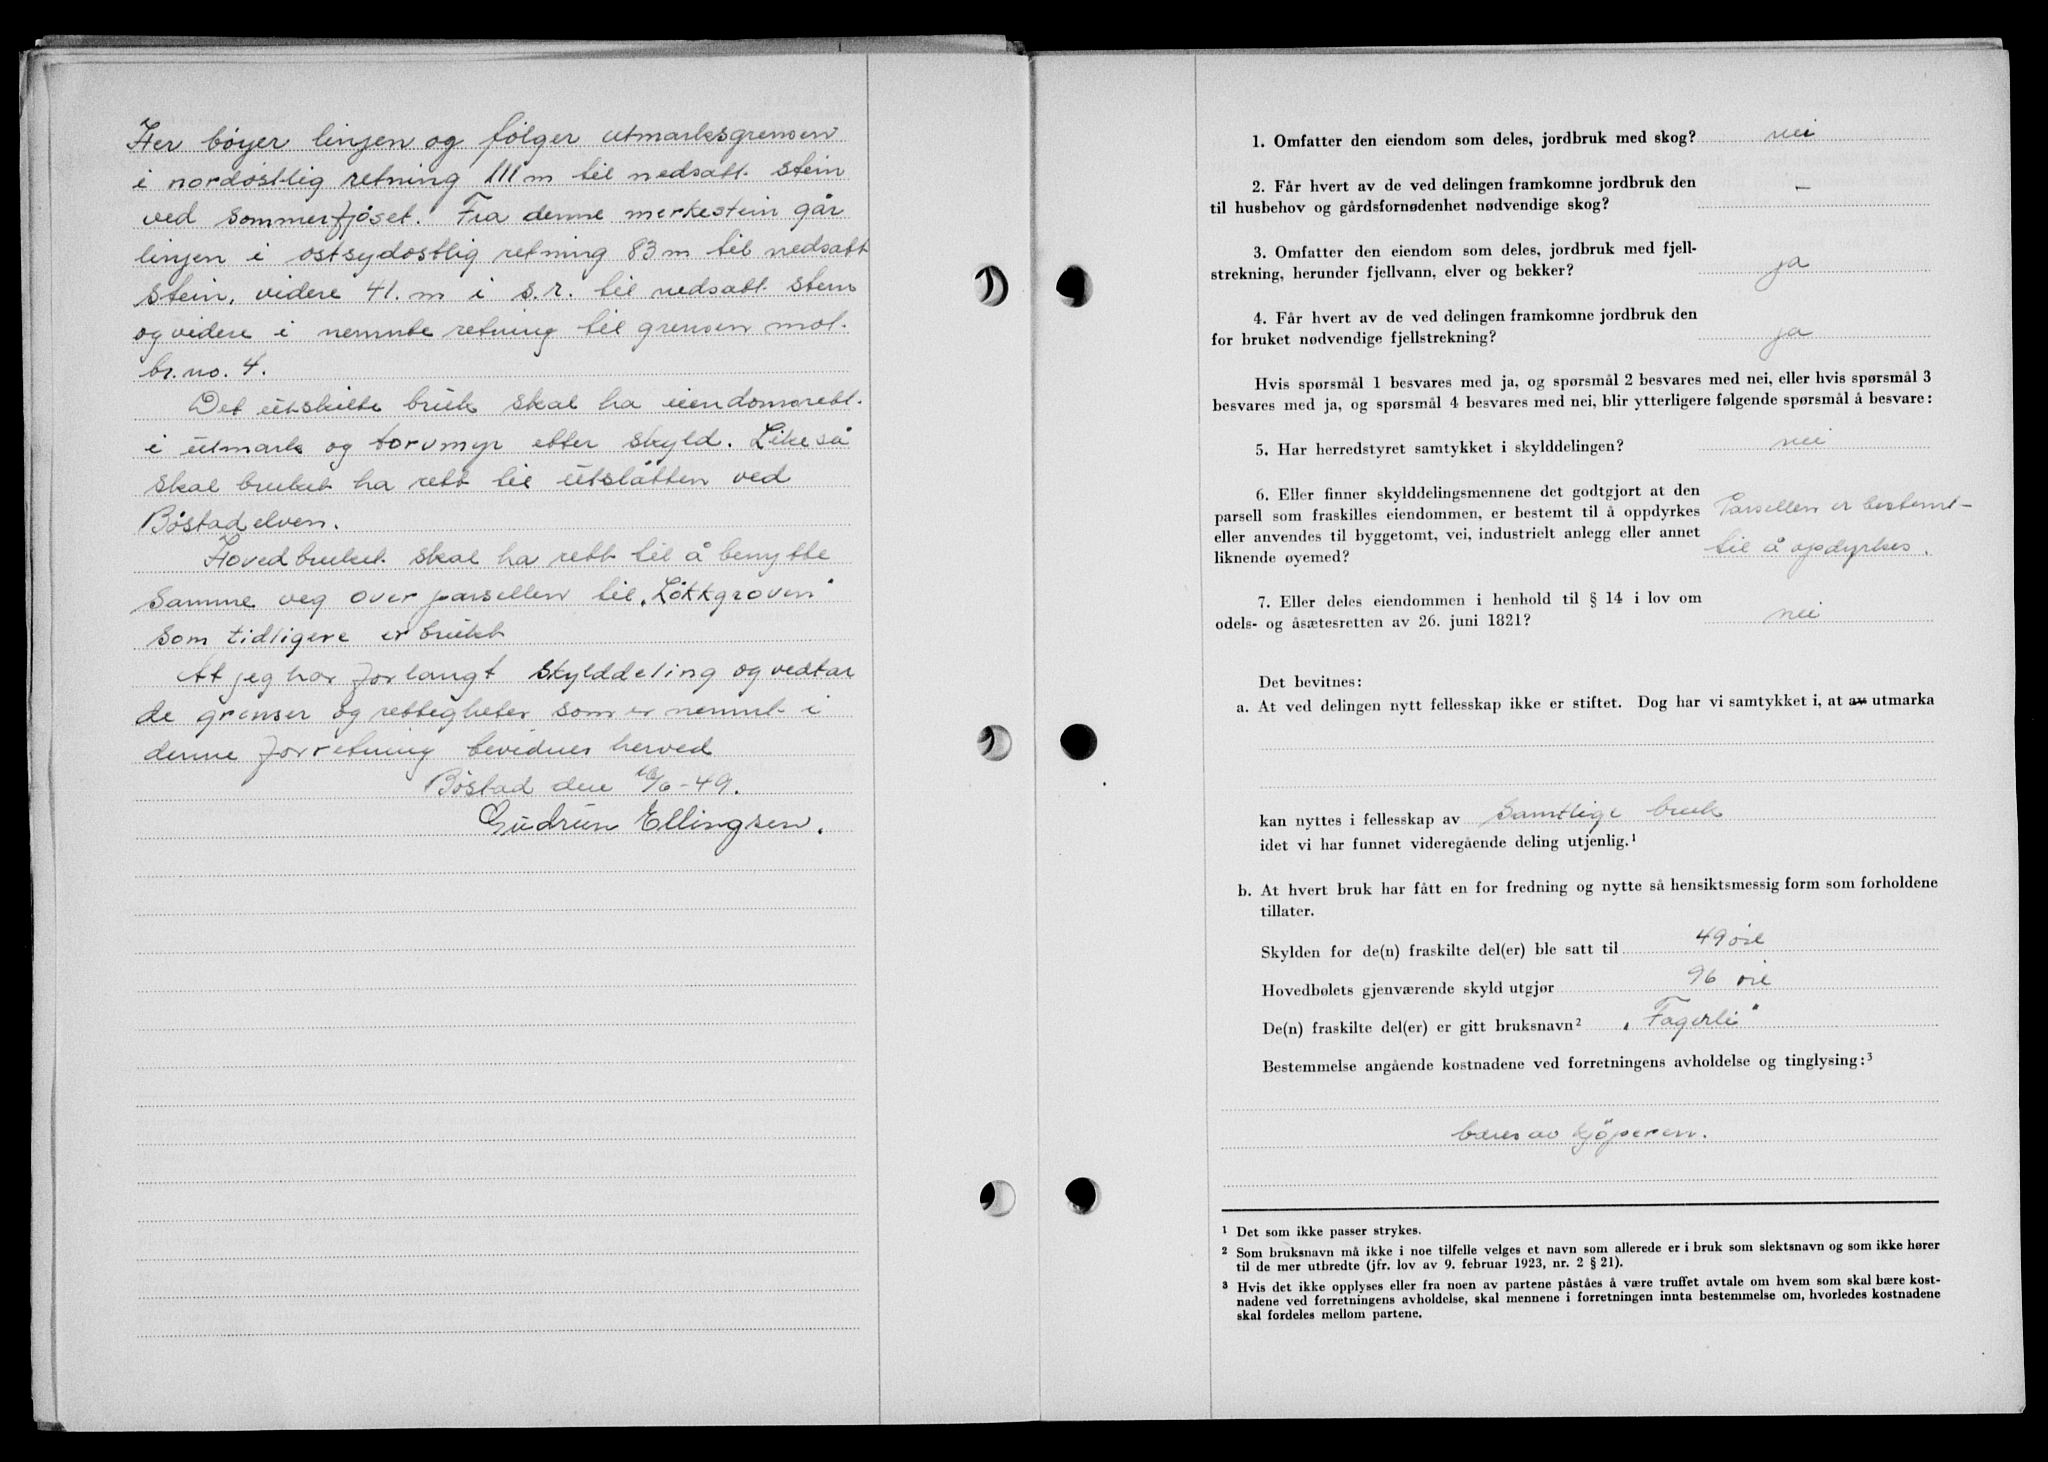 Her bøyer linjen og følger utmarksgrensen
i nordøstlig retning 111 m til nedsatt stein
ved sommerfjøset. Fra denne merkestein går
linjen i østsydøstlig retning 83 m til nedsatt
stein, videre 41. m i s.r. til nedsatt stein
og videre i nemnte retning til grensen mot
br. no. 4.
Det utskilte bruk skal ha eiendomsrett
i utmark og torvmyr etter skyld. Likeså
skal bruket ha rett til utslåtten ved
Böstadelven.
Hovedbruket skal ha rett til å benytte
samme veg over parsellen til "Løkkgroven"
som tidligere er brukt
At jeg har forlangt skylddeling og vedtar
de grenser og rettigheter som er nemnt i
denne forretning bevidnes herved
Böstad den 10/6-49.
Gudrun Ellingsen.
1. Omfatter den eiendom som deles, jordbruk med skog? nei
2. Får hvert av de ved delingen framkomne jordbruk den
til husbehov og gårdsfornødenhet nødvendige skog? –
3. Omfatter den eiendom som deles, jordbruk med fjell-
strekning, herunder fjellvann, elver og bekker? ja
4. Får hvert av de ved delingen framkomne jordbruk den
for bruket nødvendige fjellstrekning? ja
Hvis spørsmål 1 besvares med ja, og spørsmål 2 besvares med nei, eller hvis spørsmål 3
besvares med ja, og spørsmål 4 besvares med nei, blir ytterligere følgende spørsmål å besvare:
5. Har herredstyret samtykket i skylddelingen? nei
6. Eller finner skylddelingsmennene det godtgjort at den
parsell som fraskilles eiendommen, er bestemt til å oppdyrkes Parsellen er bestemt
eller anvendes til byggetomt, vei, industrielt anlegg eller annet
liknende øyemed? til å opdyrkes.
7. Eller deles eiendommen i henhold til § 14 i lov om
odels- og åsætesretten av 26. juni 1821? nei
Det bevitnes:
a. At ved delingen nytt fellesskap ikke er stiftet. Dog har vi samtykket i, at av utmarka
kan nyttes i fellesskap av samtlige bruk
idet vi har funnet videregående deling utjenlig.¹
b. At hvert bruk har fått en for fredning og nytte så hensiktsmessig form som forholdene
tillater.
Skylden for de(n) fraskilte del(er) ble satt til 49 øre
Hovedbølets gjenværende skyld utgjør 96 øre
De(n) fraskilte del(er) er gitt bruksnavn² "Fagerli"
Bestemmelse angående kostnadene ved forretningens avholdelse og tinglysing:³
bæres av kjøperen.
¹ Det som ikke passer strykes.
² Som bruksnavn må ikke i noe tilfelle velges et navn som allerede er i bruk som slektsnavn og som ikke hører
til de mer utbredte (jfr. lov av 9. februar 1923, nr. 2 § 21).
³ Hvis det ikke opplyses eller fra noen av partene påståes å være truffet avtale om hvem som skal bære kost-
nadene ved forretningens avholdelse, skal mennene i forretningen innta bestemmelse om, hvorledes kostnadene
skal fordeles mellom partene.